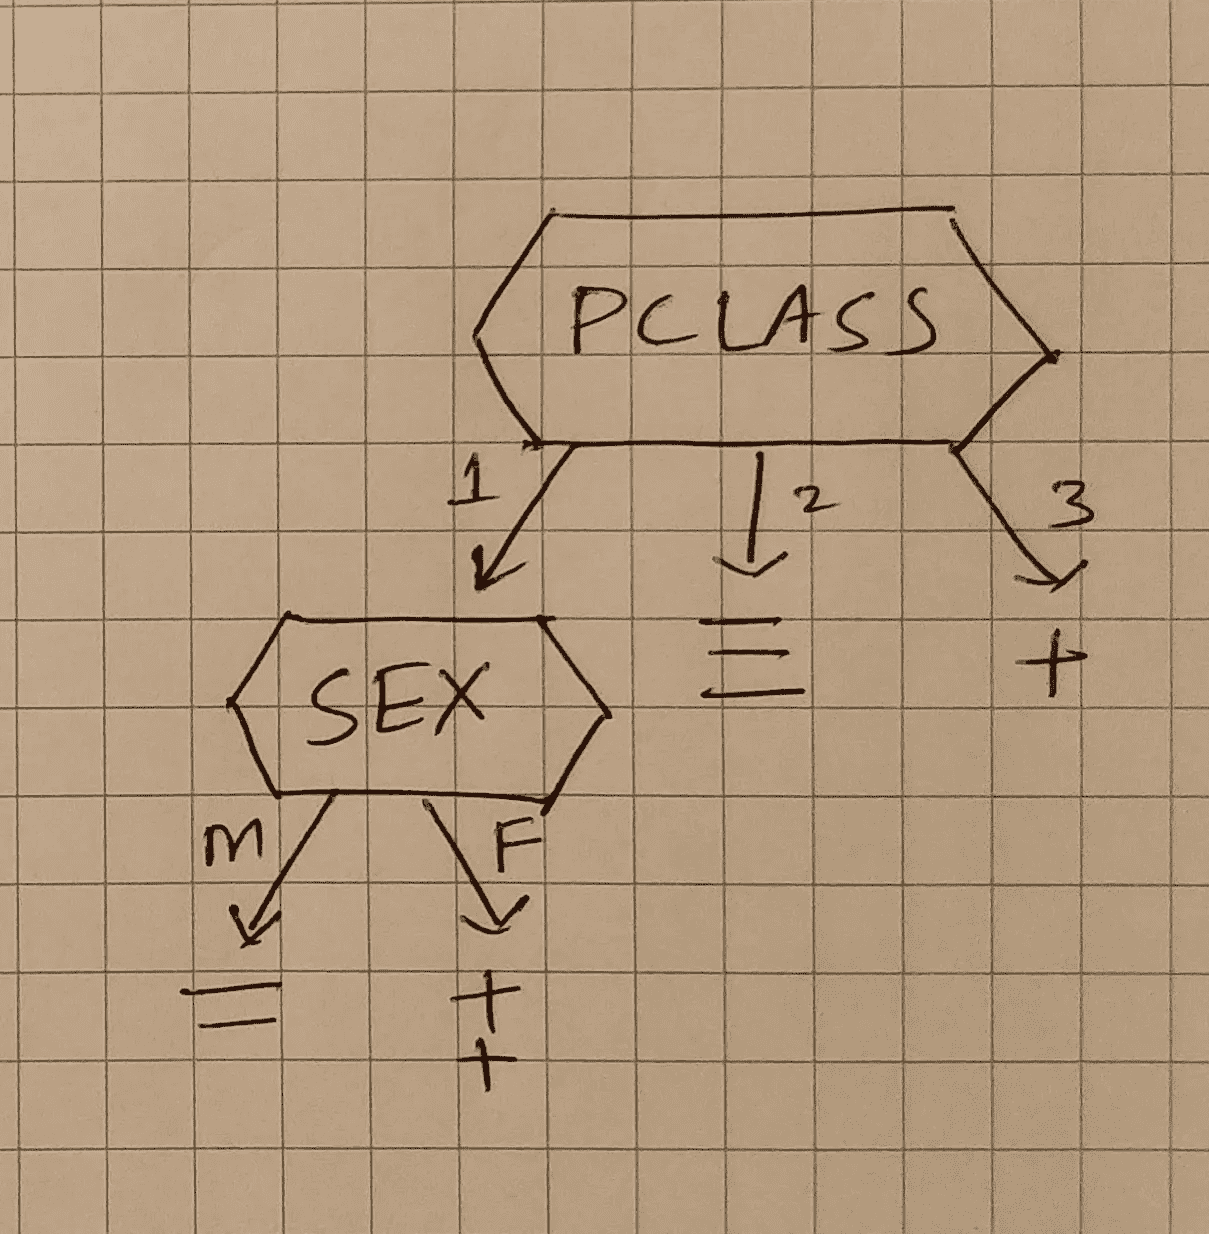 PCLASS
1 2 3
SEX
− +
−
−
M F
− +
− +